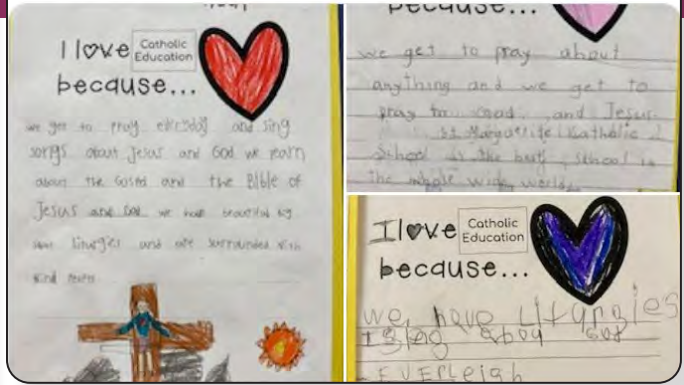 I love Catholic Education
because...
we get to pray everyday and sing
songs about Jesus and God we learn
about the Gospel and the Bible of
Jesus and God we have beautiful big
liturgies and are surrounded with
kind
because...
we get to pray about
anything and we get to
pray to God and Jesus.
St Marguerite Katholic
School is the best school in
the whole wide world.
I love Catholic Education
because...
we have Liturgies
I Sing abou God
EVERLeigh